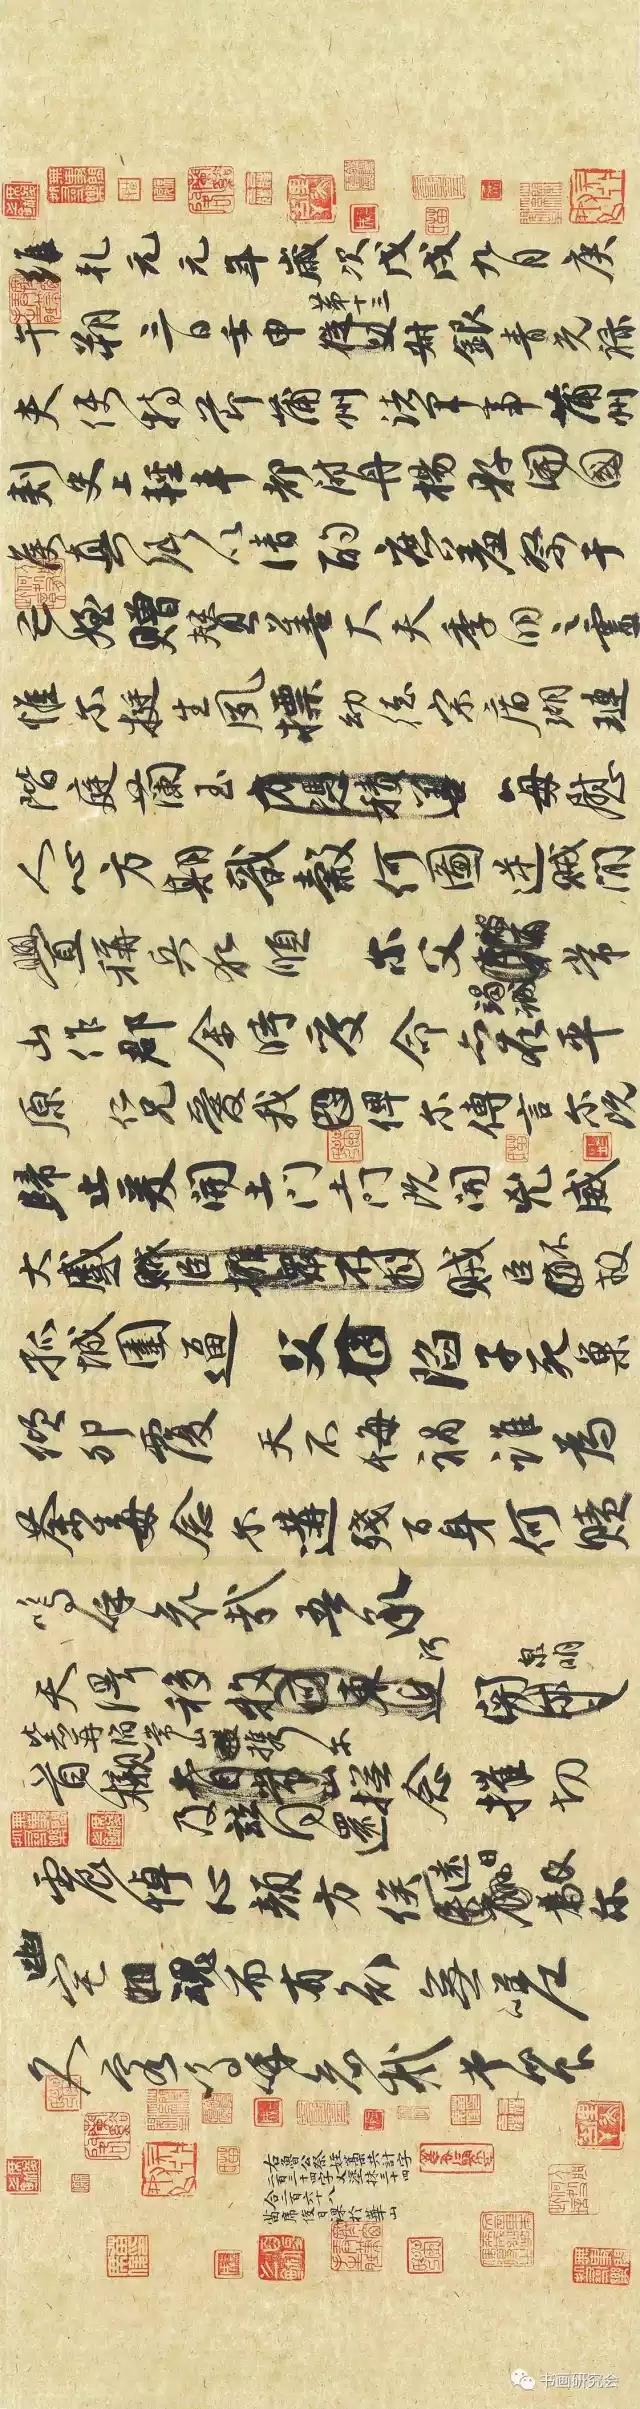 維乾元元年歲次戊戌九月庚
第十三
午朔三日壬申從父銀青光祿
夫使持節蒲州諸軍事蒲州
刺史上輕車都尉丹楊縣開國
侯真卿以清酌庶羞祭于
亡姪贈贊善大夫季明之靈
惟爾挺生夙標幼德宗廟瑚璉
階庭蘭玉方憑積善每慰
人心方期戩穀何圖逆賊閒
釁稱兵犯順 爾父竭誠常
山作郡余時受命亦在平
原 仁兄愛我俾爾傳言爾既
歸止爰開土門土門既開凶威
大蹙賊臣擁眾不救賊臣不救
孤城圍逼 父陷子死巢
傾卵覆 天不悔禍誰為
荼毒念爾遘殘百身何贖
嗚乎哀哉吾承
天澤移牧河東近 河關 泉明
比者再陷常山攜爾
首櫬及茲同還撫念摧切
震悼心顏方俟遠日卜爾
幽宅魂而有知無嗟
久客嗚呼哀哉尚饗
右魯公祭姪藁共計字
二百三十四字又塗抹三十四
合二百六十八
书画研究会